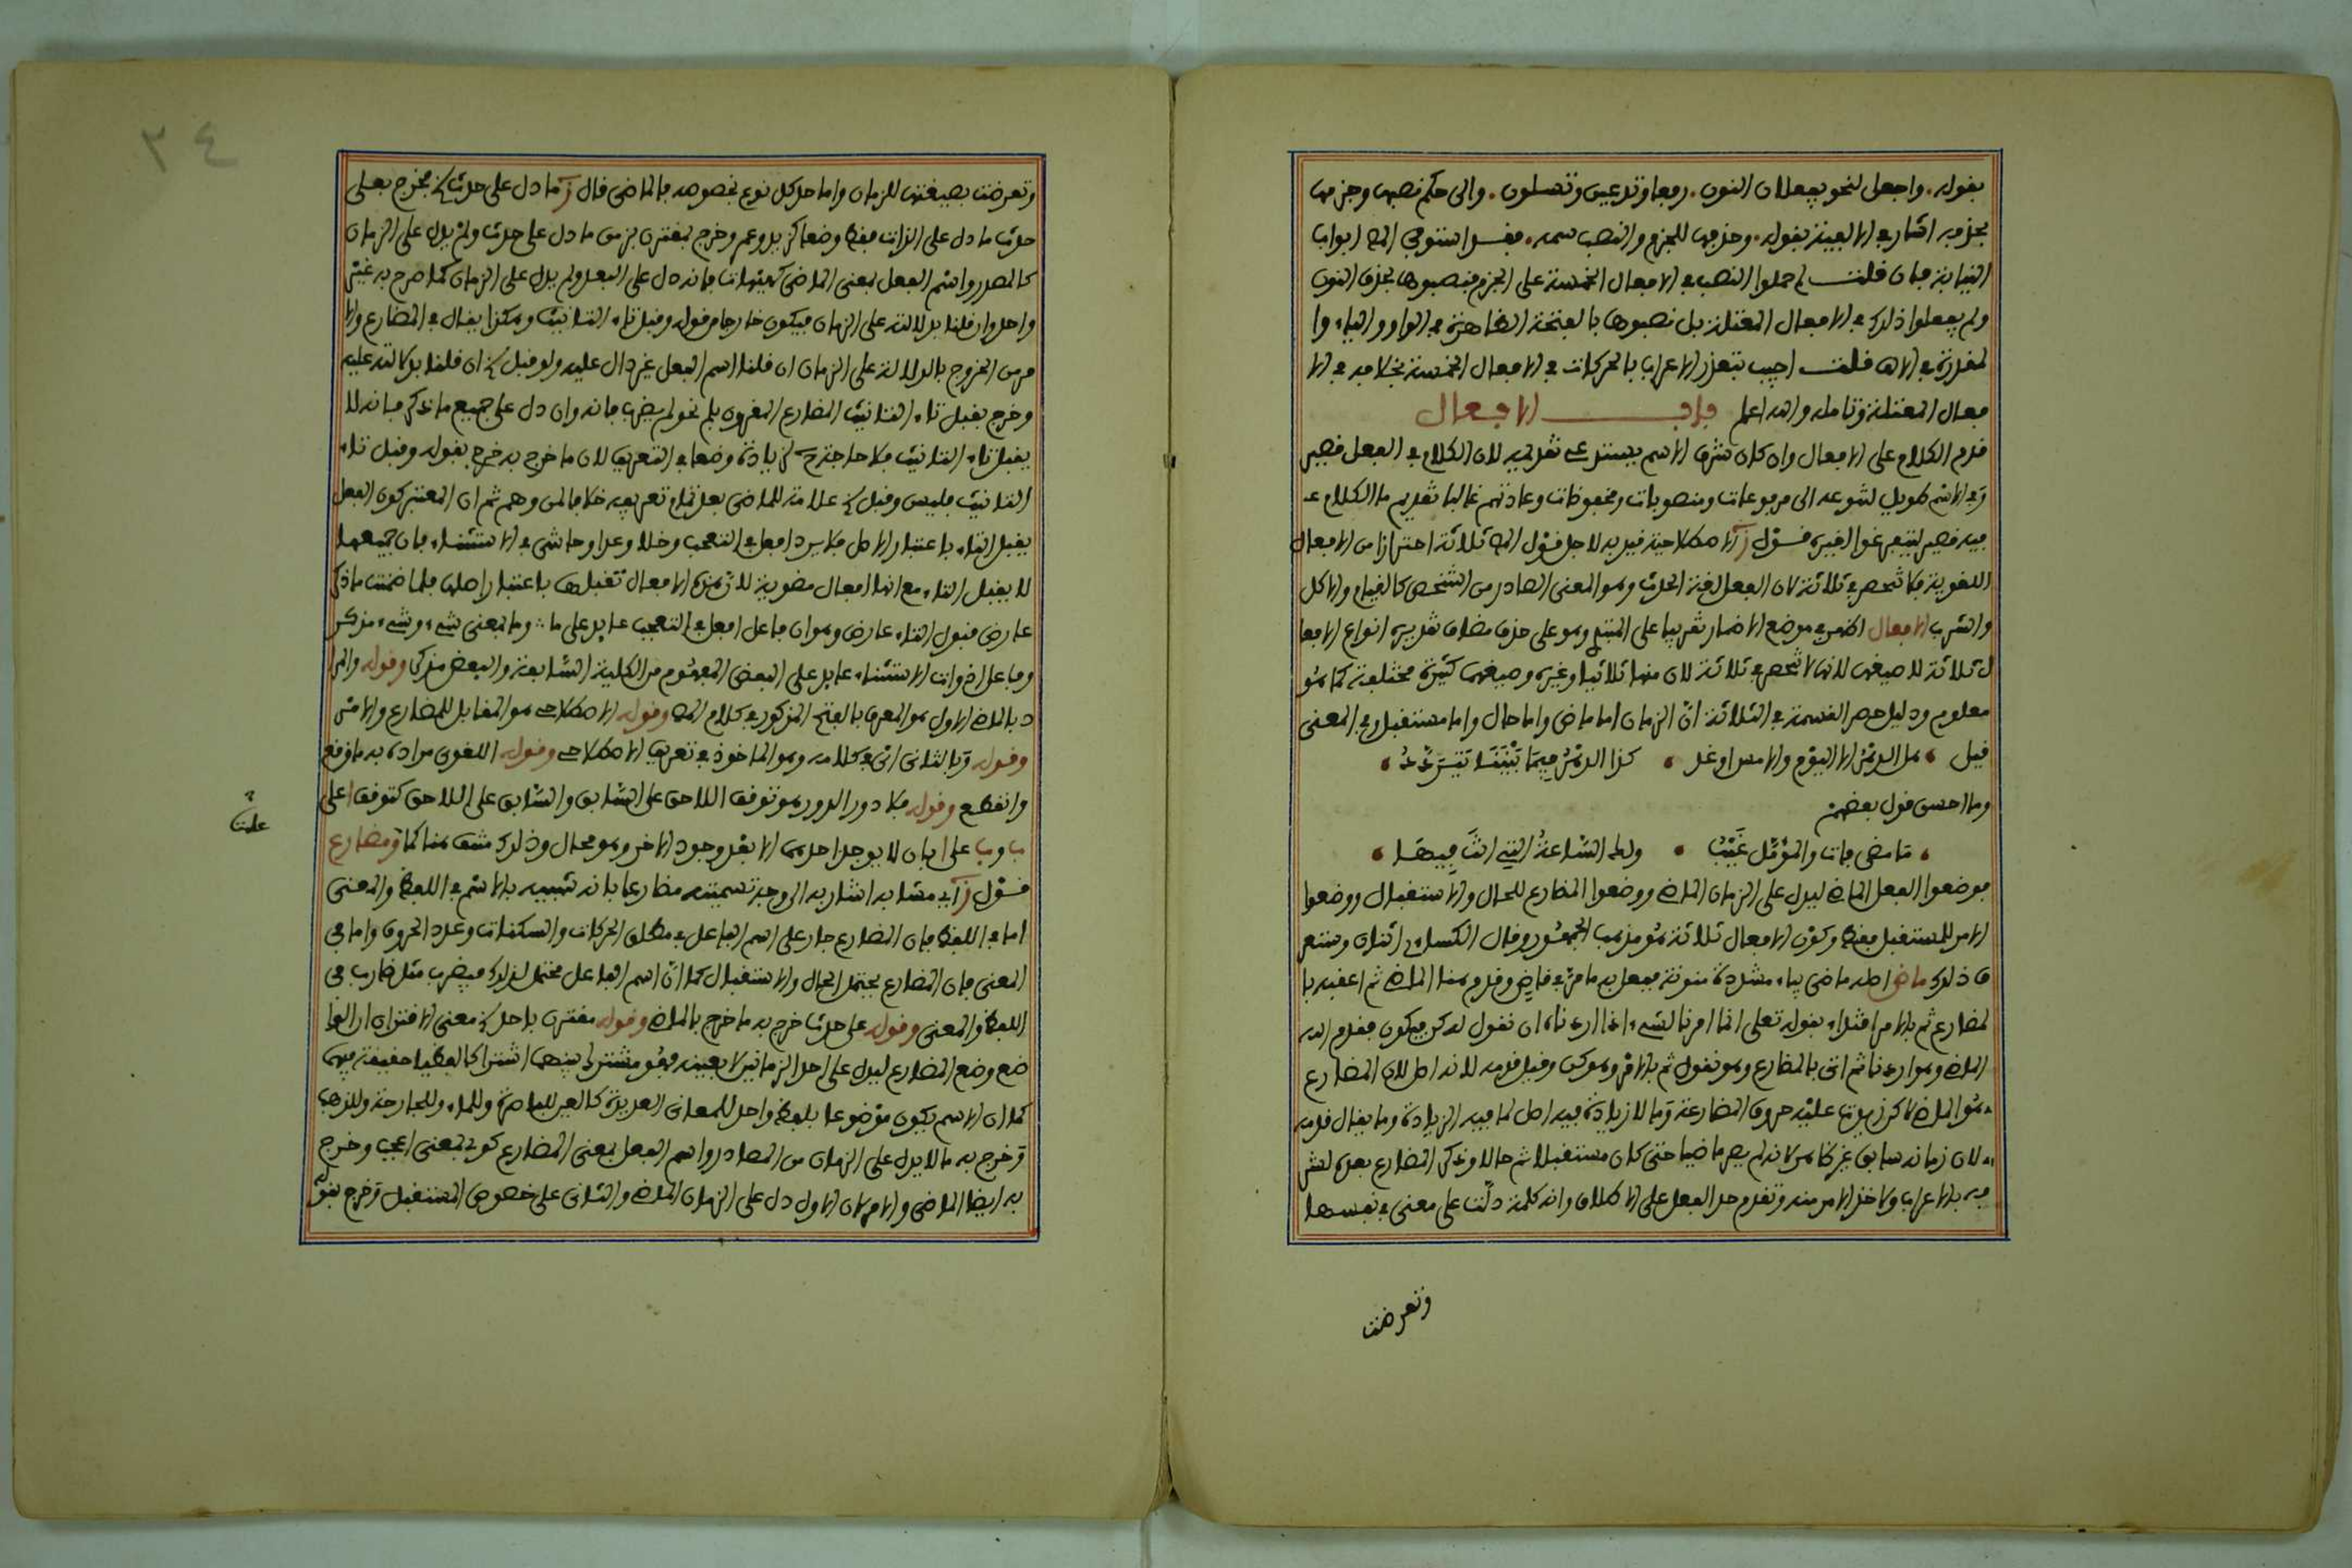 بقوله . واجعل لنحو يفعلان النون . رفعا وتدعين وتسلون . والى حكم نصبها وجزمها
بحذفه اشار في الالفية بقوله . وحذفها للجزم والنصب سمه . فقد استوفى المص ابواب
النيابة فان قلت لم حملوا النصب في الافعال الخمسة على الجزم فنصبوها بحذف النون
ولم يفعلوا ذلك في الافعال المعتلة بل نصبوها بالفتحة الظاهرة في الواو والياء وا
لمقدرة في الالف قلت اجيب بتعذر الاعراب بالحركات في الافعال الخمسة بخلافه في الا
فعال المعتلة وتامله والله اعلم باب الافعال
قدم الكلام على الافعال وان كان شرف الاسم يستدعي تقديمه لان الكلام في الفعل قصير
وفي الاسم طويل لتنوعه الى مرفوعات ومنصوبات ومخفوضات وعادتهم غالبا تقديم ما الكلام
فيه قصير ليتفرغوا لغيره قول ز الاصطلاحية قيد به لاجل قول المص ثلاثة احترازا من الافعال
اللغوية فلا تنحصر في ثلاثة لان الفعل لغة الحدث وهو المعنى الصادر من الشخص كالقيام والاكل
والشرب الافعال اظهر في موضع الاضمار تقريبا على المبتدي وهو على حذف مضاف تقديره انواع الافعا
ل ثلاثة لا صيغها لانها لا تنحصر في ثلاثة لان منها ثلاثيا وغيره وصيغها كثيرة مختلفة كما هو
معلوم ودليل حصر القسمة في الثلاثة انّ الزمان اما ماض واما حال واما مستقبل وفي المعنى
قيل هل الدهر الا اليوم والامس او غد كذا الدهر فيما بيننا يتردد
وما احسن قول بعضهم
ما مضى فات والمؤمل غيب ولك الساعة التي انت فيها
فوضعوا الفعل الماضي ليدل على الزمان الماضي ووضعوا المضارع للحال والاستقبال ووضعوا
الامر للمستقبل فقط وكون الافعال ثلاثة هو مذهب الجمهور وقال الكسائي اثنان
ذلك ماض اصله ماضي بياء مشددة منونة ففعل به ما مر في قاض وقدم هنا الماضي ثم اعقبه با
لمضارع ثم بالامر اقتداء بقوله تعلى انما امرنا لشيء اذا اردناه ان نقول له كن فيكون فقدم الله
الماضي وهو اردنا ثم اتى بالمضارع وهو نقول ثم بالامر وهو كن وقيل قدمه لانه اصل لان المضارع
هو الماضي لاكن زيدت عليه حروف المضارعة وما لا زيادة فيه اصل لما فيه الزيادة وما يقال قدمه
لان زمانه سابق غير ظاهر لانه لم يصر ماضيا حتى كان مستقبلا ثم حالا وذكر المضارع بعده لشر
فه بالاعراب ولاخذ الامر منه وتقدم حد الفعل على الاطلاق وانه كلمة دلّت على معنى في نفسها
وتعرضت
٣٤
وتعرضت بصيغتها للزمان واما حد كل نوع بخصوصه فالماضي قال ز ما دل على حدث الخ مخرج بعلى
حدث ما دل على الذات فقط وضعا كزيد وعمرو خرج بمقترن بزمن ما دل على حدث ولم يدل على الزمان
كالمصدر واسم الفعل بمعنى الماضي كهيهات فانه دل على الفعل ولم يدل على الزمان كما صرح به غير
واحد وان قلنا بدلالته على الزمان فيكون خارجا من قوله وقبل تاء التانيث وهكذا يقال في المضارع والا
مر من الخروج بالدلالة على الزمان ان قلنا اسم الفعل غير دال عليه ولو قبل الخ ان قلنا بدلالته عليه
وخرج بقبل تاء التانيث المضارع المقرون بلم نحو لم يضرب فانه وان دل على جميع ما ذكر فانه لا
يقبل تاء التانيث فلا حاجة لزيادة وضعا في التعريف لان ما خرج به خرج بقوله وقبل تاء
التانيث فليس وقبل الخ علامة للماضي بعد تمام تعريفه خلافا لمن وهم ثم ان المعتبر كون الفعل
يقبل التاء باعتبار الاصل فلا يرد افعل في التعجب وخلا وعدا وحاشى في الاستثناء فان جميعها
لا يقبل التاء مع انها افعال ماضوية لان هذه الافعال تقبلها باعتبار اصلها فلما ضمنت ما ذكر
عارض قبول التاء عارض وهو ان فاعل افعل في التعجب عايد على ما وما بمعنى شيء وشيء مذكر
وفاعل ادوات الاستثناء عايد على البعض المفهوم من الكلية السابقة والبعض مذكر وقوله والمرا
د بالماضي الاول هو المعرف بالفتح المذكور في كلام المص وقوله الاصطلاحي هو المقابل للمضارع والامر
وقوله وبالثاني اي في كلامه وهو الماخوذ في تعريف الاصطلاحي وقوله اللغوي مراده به ما وقع
وانقطع وقوله فلا دور الدور هو توقف اللاحق على السابق والسابق على اللاحق كتوقف ا على
علت
ب وب على ا بان لا يوجد احدهما الا بعد وجود الاخر وهو محال وذلك منتف هنا كما ومضارع
قول ز اي مشابه اشار به الى وجه تسميته مضارعا بانه شبيه بالاسم في اللفظ والمعنى
اما في اللفظ فان المضارع جار على اسم الفاعل في مطلق الحركات والسكنات وعدد الحروف واما في
المعنى فان المضارع يحتمل الحال والاستقبال كما انّ اسم الفاعل محتمل لذلك فيضرب مثل ضارب في
اللفظ والمعنى وقوله على حدث خرج به ما خرج بالماضي وقوله مقترن باحد الخ معنى الاقتران ان الوا
ضع وضع المضارع ليدل على احد الزمانين لا بعينه فهو مشترك بينهما اشتراكا لفظيا حقيقة فيهما
كما ان الاسم يكون موضوعا بلفظ واحد للمعاني العديدة كالعين للباصرة وللماء وللجارحة وللذهب
وخرج به ما لا يدل على الزمان من المصادر واسم الفعل بمعنى المضارع كوى بمعنى اعجب وخرج
به ايضا الماضي والامر فان الاول دل على الزمان الماضي والثاني على خصوص المستقبل وخرج بقوله